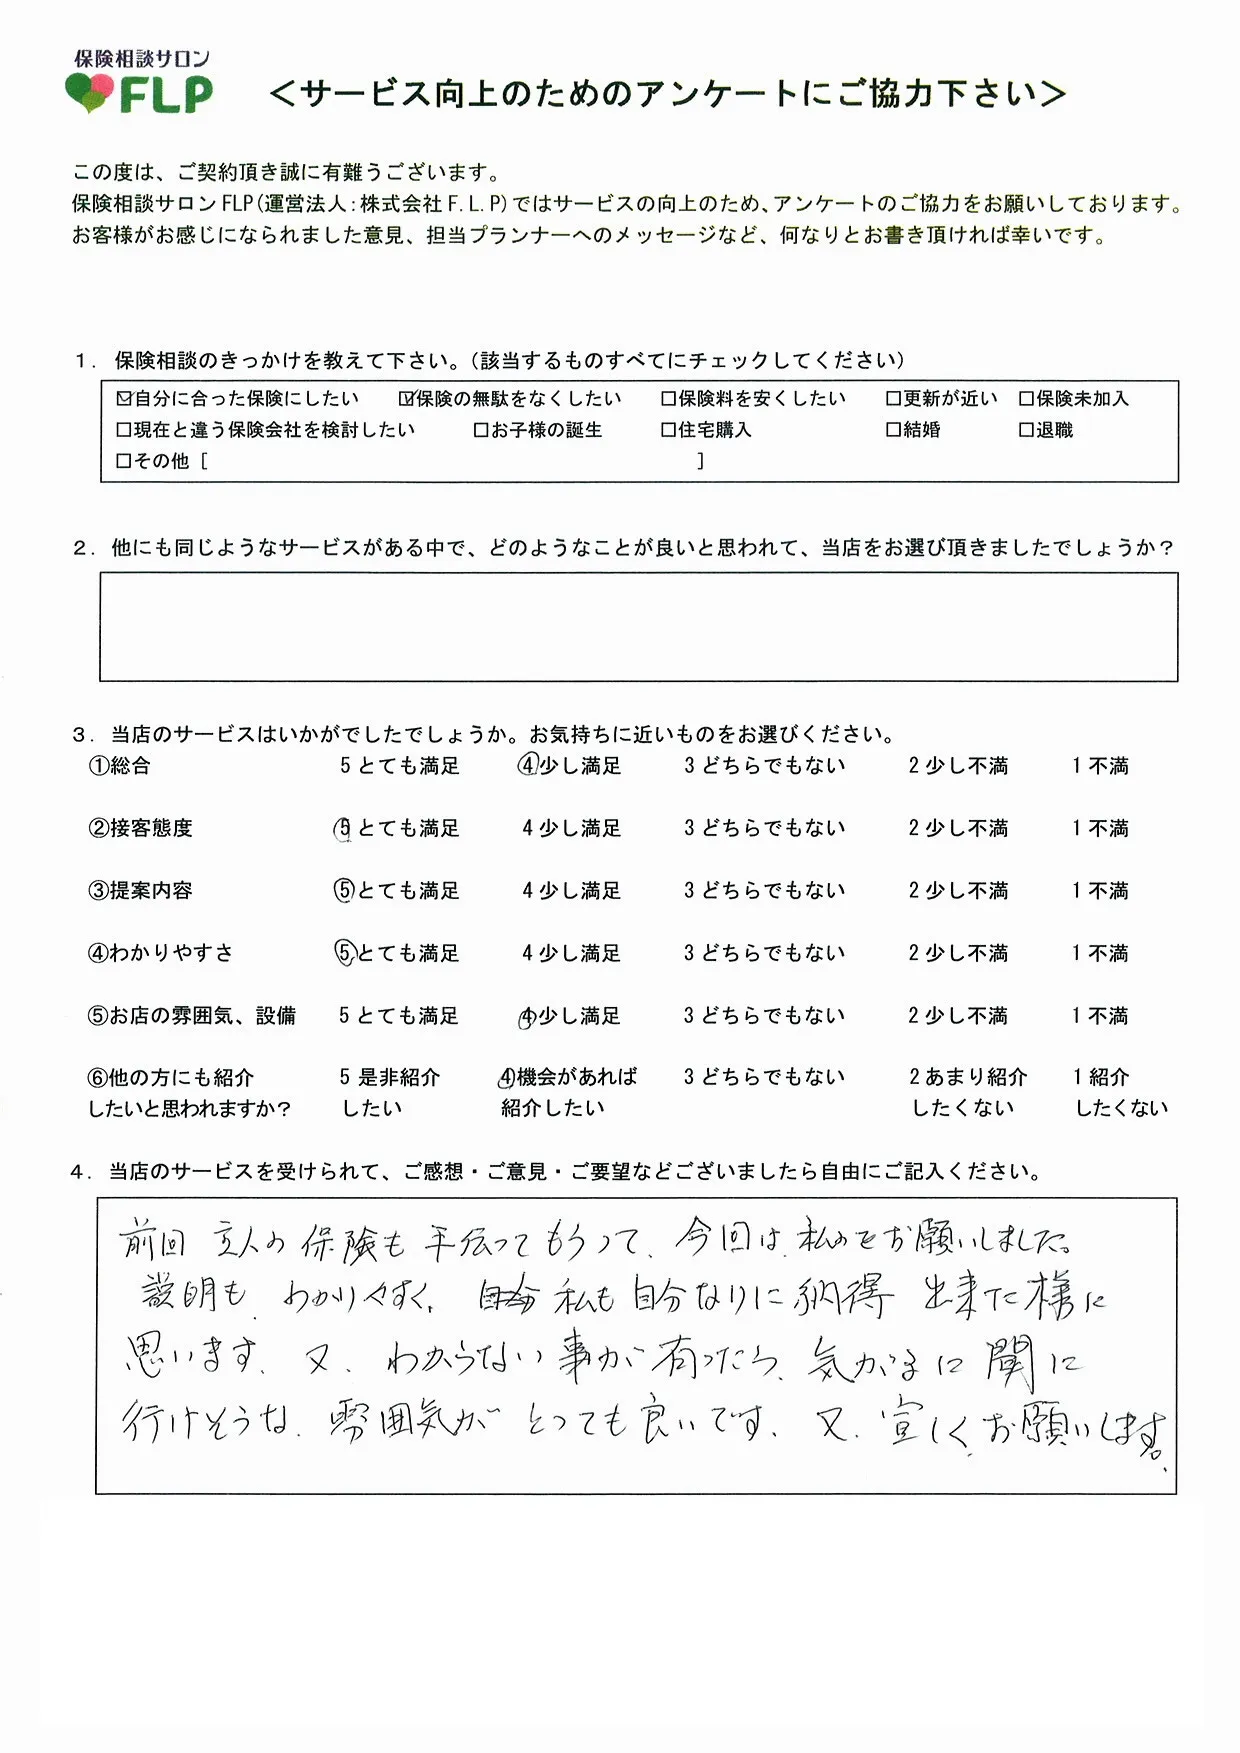 保険相談サロン
FLP
＜サービス向上のためのアンケートにご協力下さい＞
この度は、ご契約頂き誠に有難うございます。
保険相談サロンFLP(運営法人:株式会社F.L.P)ではサービスの向上のため、アンケートのご協力をお願いしております。
お客様がお感じになられました意見、担当プランナーへのメッセージなど、何なりとお書き頂ければ幸いです。
１．保険相談のきっかけを教えて下さい。（該当するものすべてにチェックしてください）
☑自分に合った保険にしたい ☑保険の無駄をなくしたい □保険料を安くしたい □更新が近い □保険未加入
□現在と違う保険会社を検討したい □お子様の誕生 □住宅購入 □結婚 □退職
□その他 [ ]
２．他にも同じようなサービスがある中で、どのようなことが良いと思われて、当店をお選び頂きましたでしょうか？
３．当店のサービスはいかがでしたでしょうか。お気持ちに近いものをお選びください。
①総合 5 とても満足 ④少し満足 3 どちらでもない 2 少し不満 1 不満
②接客態度 ⑤とても満足 4 少し満足 3 どちらでもない 2 少し不満 1 不満
③提案内容 ⑤とても満足 4 少し満足 3 どちらでもない 2 少し不満 1 不満
④わかりやすさ ⑤とても満足 4 少し満足 3 どちらでもない 2 少し不満 1 不満
⑤お店の雰囲気、設備 5 とても満足 ④少し満足 3 どちらでもない 2 少し不満 1 不満
⑥他の方にも紹介 5 是非紹介 ④機会があれば 3 どちらでもない 2 あまり紹介 1 紹介
したいと思われますか？ したい 紹介したい したくない したくない
４．当店のサービスを受けられて、ご感想・ご意見・ご要望などございましたら自由にご記入ください。
前回 主人の保険も手伝ってもらって、今回は、私のをお願いしました。
説明も、わかりやすく、私も自分なりに納得出来た様に
思います。又、わからない事が有ったら、気がるに聞に
行けそうな、雰囲気がとっても良いです。又、宜しくお願いします。